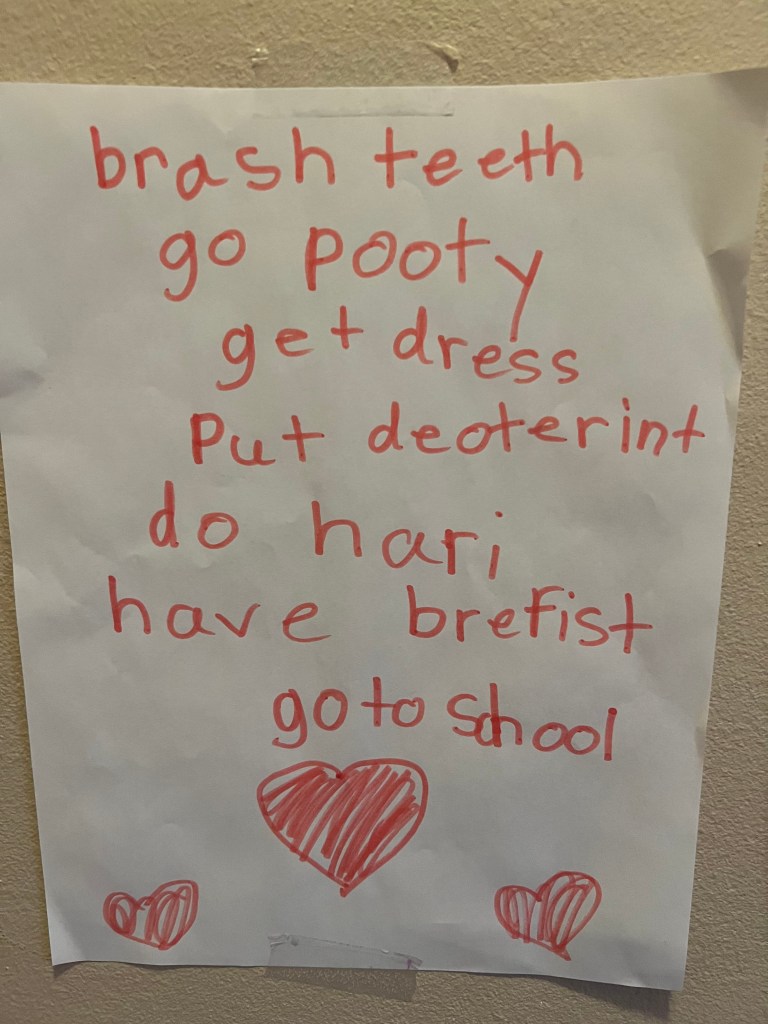 brash teeth
go pooty
get dress
Put deoterint
do hari
have brefist
go to school